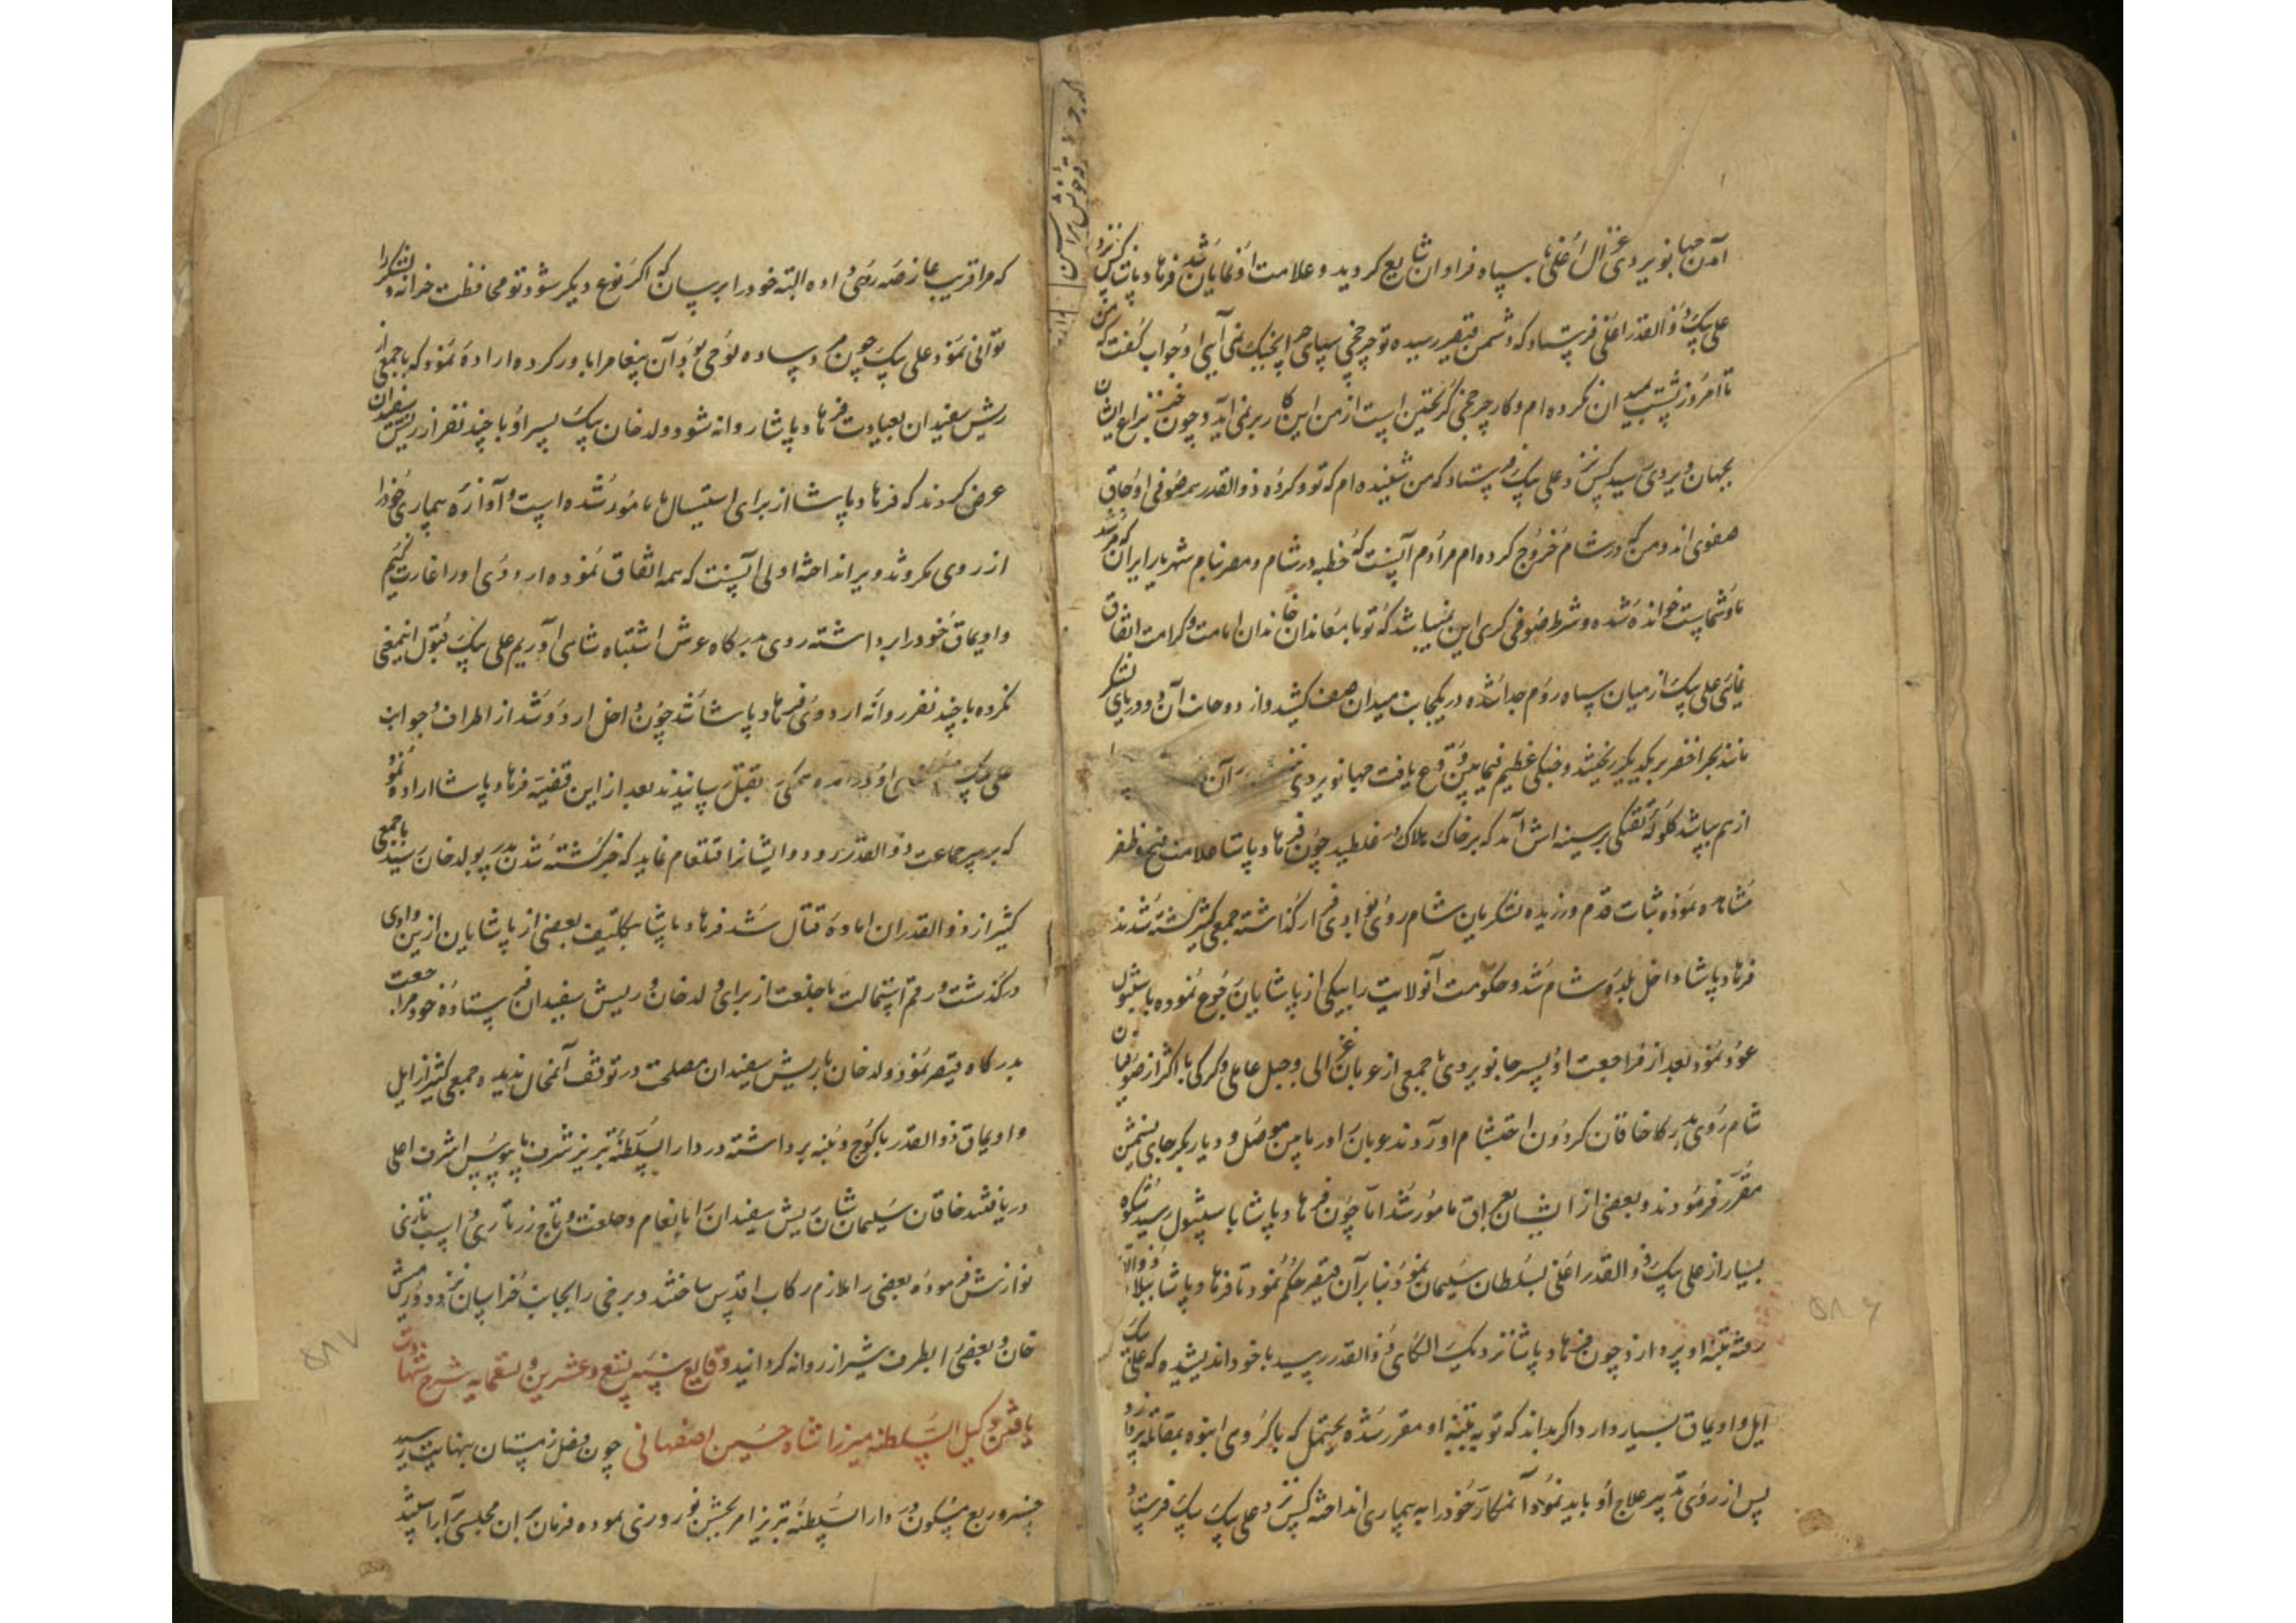 آمدن جهانبوبردی غزال اغلی با سپاه فراوان شایع کردید و علامت او نمایان شد فرهاد پاشا کس نزد
علی بیک ذوالقدر اغلی فرستاد که دشمن قیصر رسیده تو چرخچی سپاهی چرا بجنک نمی آیی او جواب کفت که من
تا امروز پشت بمیدان نکرده ام و کار چرخچی کریختن است از من این کار بر نمی آید و چون خبر نزاع ایشان
بجهان بردی رسید کس نزد علی بیک فرستاد که من شنیده ام که تو و کروه ذوالقدر همه صوفی اوجاق
صفوی اند و من که در شام خروج کرده ام مرادم آنست که خطبه در شام و مصر بنام شهریار ایران که مرشد
ما و شماست خوانده شده و شرط صوفی کری این نمیباشد که تو با معاندان خاندان امامت و کرامت اتفاق
نمایی علی بیک از میان سپاه روم جدا شده در یکجانب میدان صف کشید و از دو جانب آن دو دریای لشکر
مانند بحر اخضر بر یکدیکر ریختند و جنکی عظیم فیما بین وقوع یافت جهانبوبردی آن
از هم بپاشد کلوله تفنکی بر سینه اش آمد که بر خاک هلاک غلطید چون فرهاد پاشا علامت فتح و ظفر
مشاهده نموده ثبات قدم ورزیده لشکریان شام روی بوادی فرار کذاشته جمعی کثیر کشته شدند
فرهاد پاشا داخل بلده شام شد و حکومت آنولایت را بیکی از پاشایان رجوع نموده باستنبول
عود نمود بعد از مراجعت او پسر جانبوبردی با جمعی از عوبان الی و جبل عاملی و کرکی با اکثر از صوفیان
شام روی بدرکاه خاقان کردون احتشام آوردند عوبان را در مابین موصل و دیاربکر جای نشیمن
مقرر فرمودند و بعضی از ایشان بعراق مامور شد اما چون فرهاد پاشا باستنبول رسید شکوه
بسیار از علی بیک ذوالقدر اغلی بسلطان سلیمان نمود و بنابرآن قیصر حکم نمود تا فرهاد پاشا ببلاد ذوالقدر
رفته بتنبیه او پردازد چون فرهاد پاشا نزدیک الکای ذوالقدر رسید با خود اندیشیده که علی بیک
ایل و اویماق بسیار دارد اکر بداند که تو به تنبیه او مقرر شده یحتمل که با کروی انبوه بمقاتله پردازد
پس از روی تدبیر علاج او باید نمود آنمکار خود را به بیماری انداخته کس نزد علی بیک بیک فرستاد
که مرا قریب عارضه روی داده البته خود را برسان که اکر نوع دیکر شود تو محافظت خزانه و لشکر را
توانی نمود علی بیک چون مرد ساده لوحی بود آن پیغام را باور کرده اراده نمود که با جمعی از
ریش سفیدان بعیادت فرهاد پاشا روانه شود ولد خان بیک پسر او با چند نفر از ریش سفیدان
عرض کردند که فرهاد پاشا از برای استیصال ما مامور شده است و آوازه بیماری خود را
از روی مکر و تدویر انداخته اولی آنست که همه اتفاق نموده اردوی او را غارت کنیم
و اویماق خود را برداشته روی بدرکاه عرش اشتباه شاهی آوریم علی بیک قبول اینمعنی
نکرده با چند نفر روانه اردوی فرهاد پاشا شد چون داخل اردو شد از اطراف و جوانب
علی بیک او در آمده همکی بقتل رسانیدند بعد از این قضیه فرهاد پاشا اراده نمود
که بر سر جماعت ذوالقدر رود و ایشانرا قتلعام نماید که خبر کشته شدن پدر بولد خان رسید با جمعی
کثیر از ذوالقدران اماده قتال شد فرهاد پاشا بتکلیف بعضی از پاشایان از این وادی
درکذشت و رقم استمالت با خلعت از برای ولد خان و ریش سفیدان فرستاده خود مراجعت
بدرکاه قیصر نمود ولد خان با ریش سفیدان مصلحت در توقف آنمحال ندیده جمعی کثیر از ایل
و اویماق ذوالقدر با کوچ و بنه برداشته در دارالسلطنه تبریز شرف پابوس اشرف اعلی
دریافتند خاقان سلیمان شان ریش سفیدان را بانعام و خلعت و تاج زرتاری و اسب تازی
نوازش فرموده بعضی را ملازم رکاب اقدس ساختند و برخی را بجانب خراسان نزد دورمش
خان و بعضی را بطرف شیراز روانه کردانید وقایع سنه تسع و عشرین و تسعمایه شرح شهادت
یافتن وکیل السلطنه میرزا شاه حسین اصفهانی چون فصل زمستان بنهایت رسید
خسرو ربع مسکون در دارالسلطنه تبریز امر بجشن نوروزی نموده فرمان بران مجلسی آراستند
۵۸۶
۵۸۷